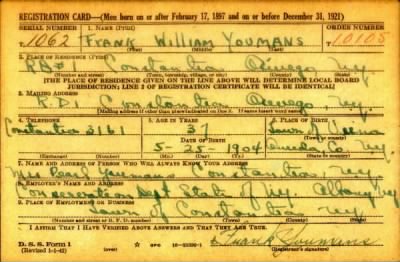 REGISTRATION CARD—(Men born on or after February 17, 1897 and on or before December 31, 1921)
SERIAL NUMBER 1. NAME (Print) ORDER NUMBER
1062 FRANK WILLIAM YOUMANS 10105
(First) (Middle) (Last)
2. PLACE OF RESIDENCE (Print)
RD#1 Constantia Oswego N.Y.
(Number and street) (Town, township, village, or city) (County) (State)
[THE PLACE OF RESIDENCE GIVEN ON THE LINE ABOVE WILL DETERMINE LOCAL BOARD
JURISDICTION; LINE 2 OF REGISTRATION CERTIFICATE WILL BE IDENTICAL]
3. MAILING ADDRESS
R.D. 1 Constantia Oswego N.Y.
4. TELEPHONE 5. AGE IN YEARS 6. PLACE OF BIRTH
Constantia 3161 37 Town of Vienna
DATE OF BIRTH
5-25-1904 Oneida Co. N.Y.
7. NAME AND ADDRESS OF PERSON WHO WILL ALWAYS KNOW YOUR ADDRESS
Mrs Pearl Youmans Constantia N.Y.
8. EMPLOYER'S NAME AND ADDRESS
Conservation Dept State of N.Y. Albany N.Y.
9. PLACE OF EMPLOYMENT OR BUSINESS
Town of Constantia N.Y.
(Number and street or R. F. D. number) (Town) (County) (State)
I AFFIRM THAT I HAVE VERIFIED ABOVE ANSWERS AND THAT THEY ARE TRUE.
D. S. S. Form 1
(Revised 1-1-42)
Frank Youmans